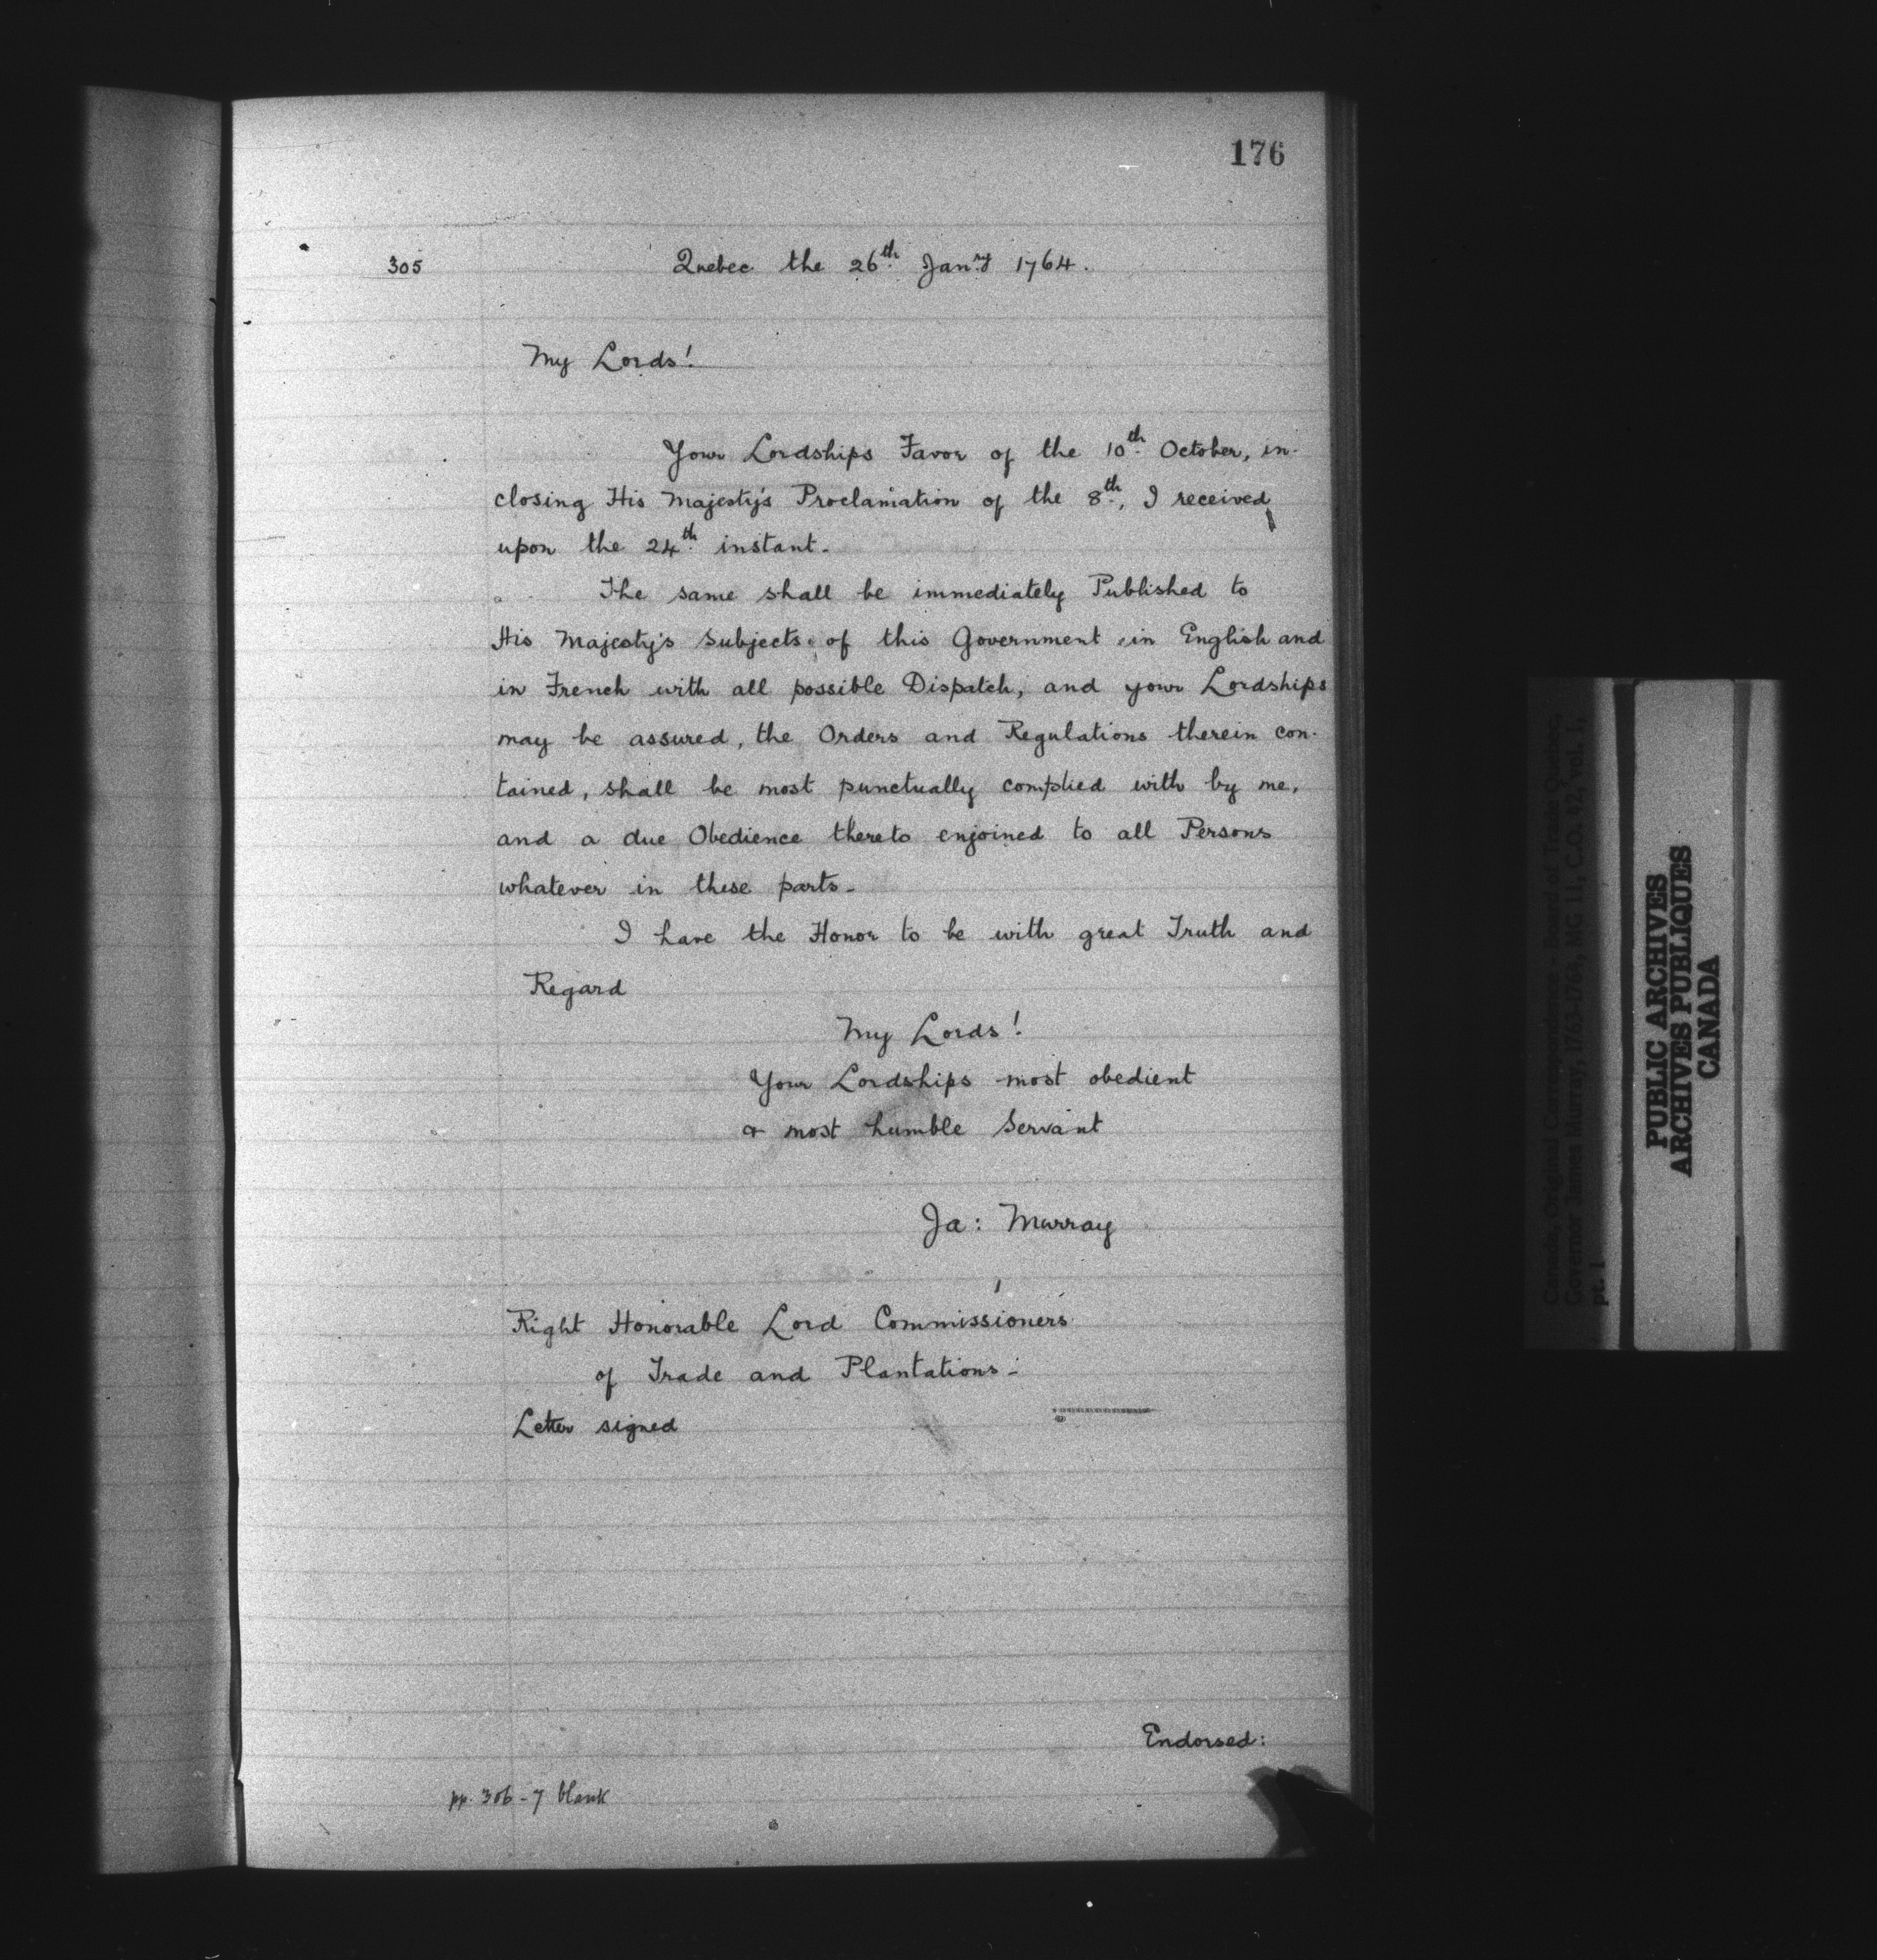 176
305
Quebec the 26th Janry 1764.
My Lords!
Your Lordships Favor of the 10th October, in-
closing His Majesty's Proclamation of the 8th, I received
upon the 24th instant.
The same shall be immediately Published to
His Majesty's Subjects of this Government in English and
in French with all possible Dispatch, and your Lordships
may be assured, the Orders and Regulations therein con-
tained, shall be most punctually complied with by me,
and a due Obedience thereto enjoined to all Persons
whatever in these parts-
I have the Honor to be with great Truth and
Regard
My Lords!
Your Lordships most obedient
& most humble Servant
Ja: Murray
Right Honorable Lord Commissioners
of Trade and Plantations-
Letter signed
Endorsed:
pp. 306-7 blank
Canada, Original Correspondence - Board of Trade Quebec,
Governor James Murray, 1763-1764, MG 11, C.O. 42, vol. 1,
pt. 1
PUBLIC ARCHIVES
ARCHIVES PUBLIQUES
CANADA